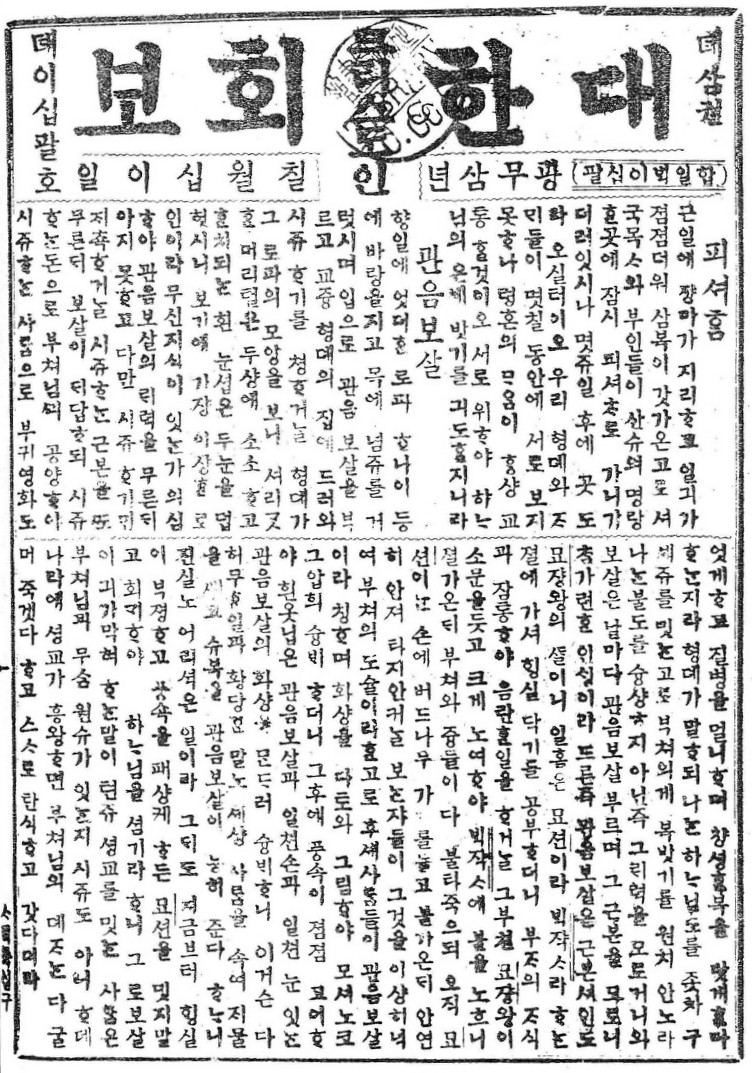 대한크리스도인회보
뎨삼권
뎨이십팔호
(합일빅이십팔)
광무삼년
칠월십이일
피셔홈
근일에 쟝마가 지리ᄒᆞ고 일긔가
졈졈더워 삼복이 갓가온고로 셔
국목ᄉᆞ와 부인들이 산슈의 명랑
ᄒᆞᆫ곳에 잠시 피셔ᄒᆞ로 가니가
더러잇시나 몃쥬일 후에 곳 도
라 오실터이오 우리 형뎨와 ᄌᆞ
ᄆᆡ들이 몃칠 동안에 서로 보지
못ᄒᆞ나 령혼의 ᄆᆞ음이 ᄒᆞᆼ샹 교
통 ᄒᆞᆯ것이오 서로 위ᄒᆞ야 하ᄂᆞ
님의 은혜 밧기를 긔도ᄒᆞᆯ지니라
관음보살
향일에 엇더ᄒᆞᆫ 로파 ᄒᆞ나이 등
에 바랑을지고 목에 념쥬를 거
럿시며 입으로 관음 보살을 부
르고 교즁 형뎨의 집에 드러와
시쥬ᄒᆞ기를 쳥ᄒᆞ거ᄂᆞᆯ 형뎨가
그 로파의 모양을 보니 셔리ᄀᆞᆺ
ᄒᆞᆫ 머리털은 두샹에 소소 ᄒᆞ고
흰 눈셥은 두눈을 덥
헛시니 보기에 가장 이상ᄒᆞᆫ 로
인이라 무신지식이 잇ᄂᆞᆫ가 의심
ᄒᆞ야 관음보살의 ᄅᆡ력을 무른ᄃᆡ
아지 못ᄒᆞ고 다만 시쥬ᄒᆞ기ᄅᆞᆯ
ᄌᆡ촉ᄒᆞ거ᄂᆞᆯ 시쥬ᄒᆞᄂᆞᆫ 근본을 ᄯᅩ
무른ᄃᆡ 보살이 ᄃᆡ답ᄒᆞ되 시쥬
ᄒᆞᄂᆞᆫ돈으로 부쳐님ᄭᅴ 공양ᄒᆞ야
시쥬ᄒᆞᄂᆞᆫ 사ᄅᆞᆷ으로 부귀영화도
엇게ᄒᆞ고 질병을 멀니ᄒᆞ며 쟝ᄉᆡᆼ흥복을 맛게ᄒᆞᆫ다
ᄒᆞᄂᆞᆫ지라 형뎨가 말ᄒᆞ되 나ᄂᆞᆫ 하ᄂᆞ님도를 좃차 구
셰쥬를 밋ᄂᆞᆫ고로 부쳐의게 복밧기를 원치 안노라
나ᄂᆞᆫ불도를 슝샹ᄒᆞ지 아닌즉 그ᄅᆡ력을 모로거니와
보살은 날마다 관음보살 부르며 그 근본을 모로니
ᄎᆞᆷ가련ᄒᆞᆫ 인ᄉᆡᆼ이라 드른즉 관음보살은 근본셔인도
묘쟝왕의 ᄯᆞᆯ이니 일홈은 묘션이라 ᄇᆡᆨ쟉ᄉᆞ라 ᄒᆞᄂᆞᆫ
졀에 가셔 ᄒᆡᆼ실 닥기를 공부ᄒᆞ더니 부ᄌᆞ의 ᄌᆞ식
과 잠통ᄒᆞ야 음란ᄒᆞᆫ일을 ᄒᆞ거ᄂᆞᆯ 그부친 묘쟝왕이
소문을듯고 크게 노여ᄒᆞ야 ᄇᆡᆨ쟉ᄉᆞ에 불을 노흐니
졀가온ᄃᆡ 부쳐와 즁들이 다 불타죽으되 오직 묘
션이ᄂᆞᆫ 손에 버드나무 가지를들고 불가온ᄃᆡ 안연
히 안져 타지안커ᄂᆞᆯ 보ᄂᆞᆫ자들이 그것을 이샹히녁
여 부쳐의 도술이라ᄒᆞᆫ고로 후셰사ᄅᆞᆷ들이 관음보살
이라 칭ᄒᆞ며 화샹을 다토와 그림ᄒᆞ야 모셔노코
그압희 슝ᄇᆡ ᄒᆞ더니 그후에 풍속이 졈졈 괴이ᄒᆞ
야 흰옷닙은 관음보살과 일쳔손과 일쳔 눈 잇ᄂᆞᆫ
관음보살의 화샹을 ᄆᆞᆫ드러 슝ᄇᆡᄒᆞ니 이거슨 다
허무ᄒᆞᆫ일과 황당ᄒᆞᆫ 말노 셰샹 사ᄅᆞᆷ을 속여 ᄌᆡ물
슈복을 관음보살이 능히 준다 ᄒᆞᄂᆞ니
진실노 어리셕은 일이라 그ᄃᆡ도 지금브터 ᄒᆡᆼ실
이 부졍ᄒᆞ고 풍속을 패샹케 ᄒᆞ든 묘션을 밋지말
고 회ᄀᆡᄒᆞ야 하ᄂᆞ님을 셤기라 ᄒᆞ니 그 로보살
이 긔가막혀 ᄒᆞᄂᆞᆫ말이 텬쥬 셩교를 밋ᄂᆞᆫ 사ᄅᆞᆷ은
부쳐님과 무ᄉᆞᆷ 원슈가 잇ᄂᆞᆫ지 시쥬도 아니 ᄒᆞ데
나라에 셩교가 흥왕ᄒᆞ면 부쳐님의 뎨ᄌᆞᄂᆞᆫ 다 굴
머 죽겟다 ᄒᆞ고 스ᄉᆞ로 탄식ᄒᆞ고 갓다더라